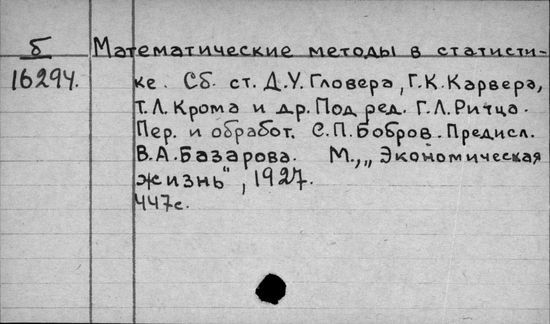 Б Математические методы в статисти-
16294. ке. Сб. ст. Д.У.Гловера, Г.К.Карвера,
Т.Л.Крома и др. Под ред. Г.Л.Ритца.
Пер. и обработ. С.П.Бобров. Предисл.
В.А.Базарова. М., „Экономическая
жизнь", 1927.
447с.